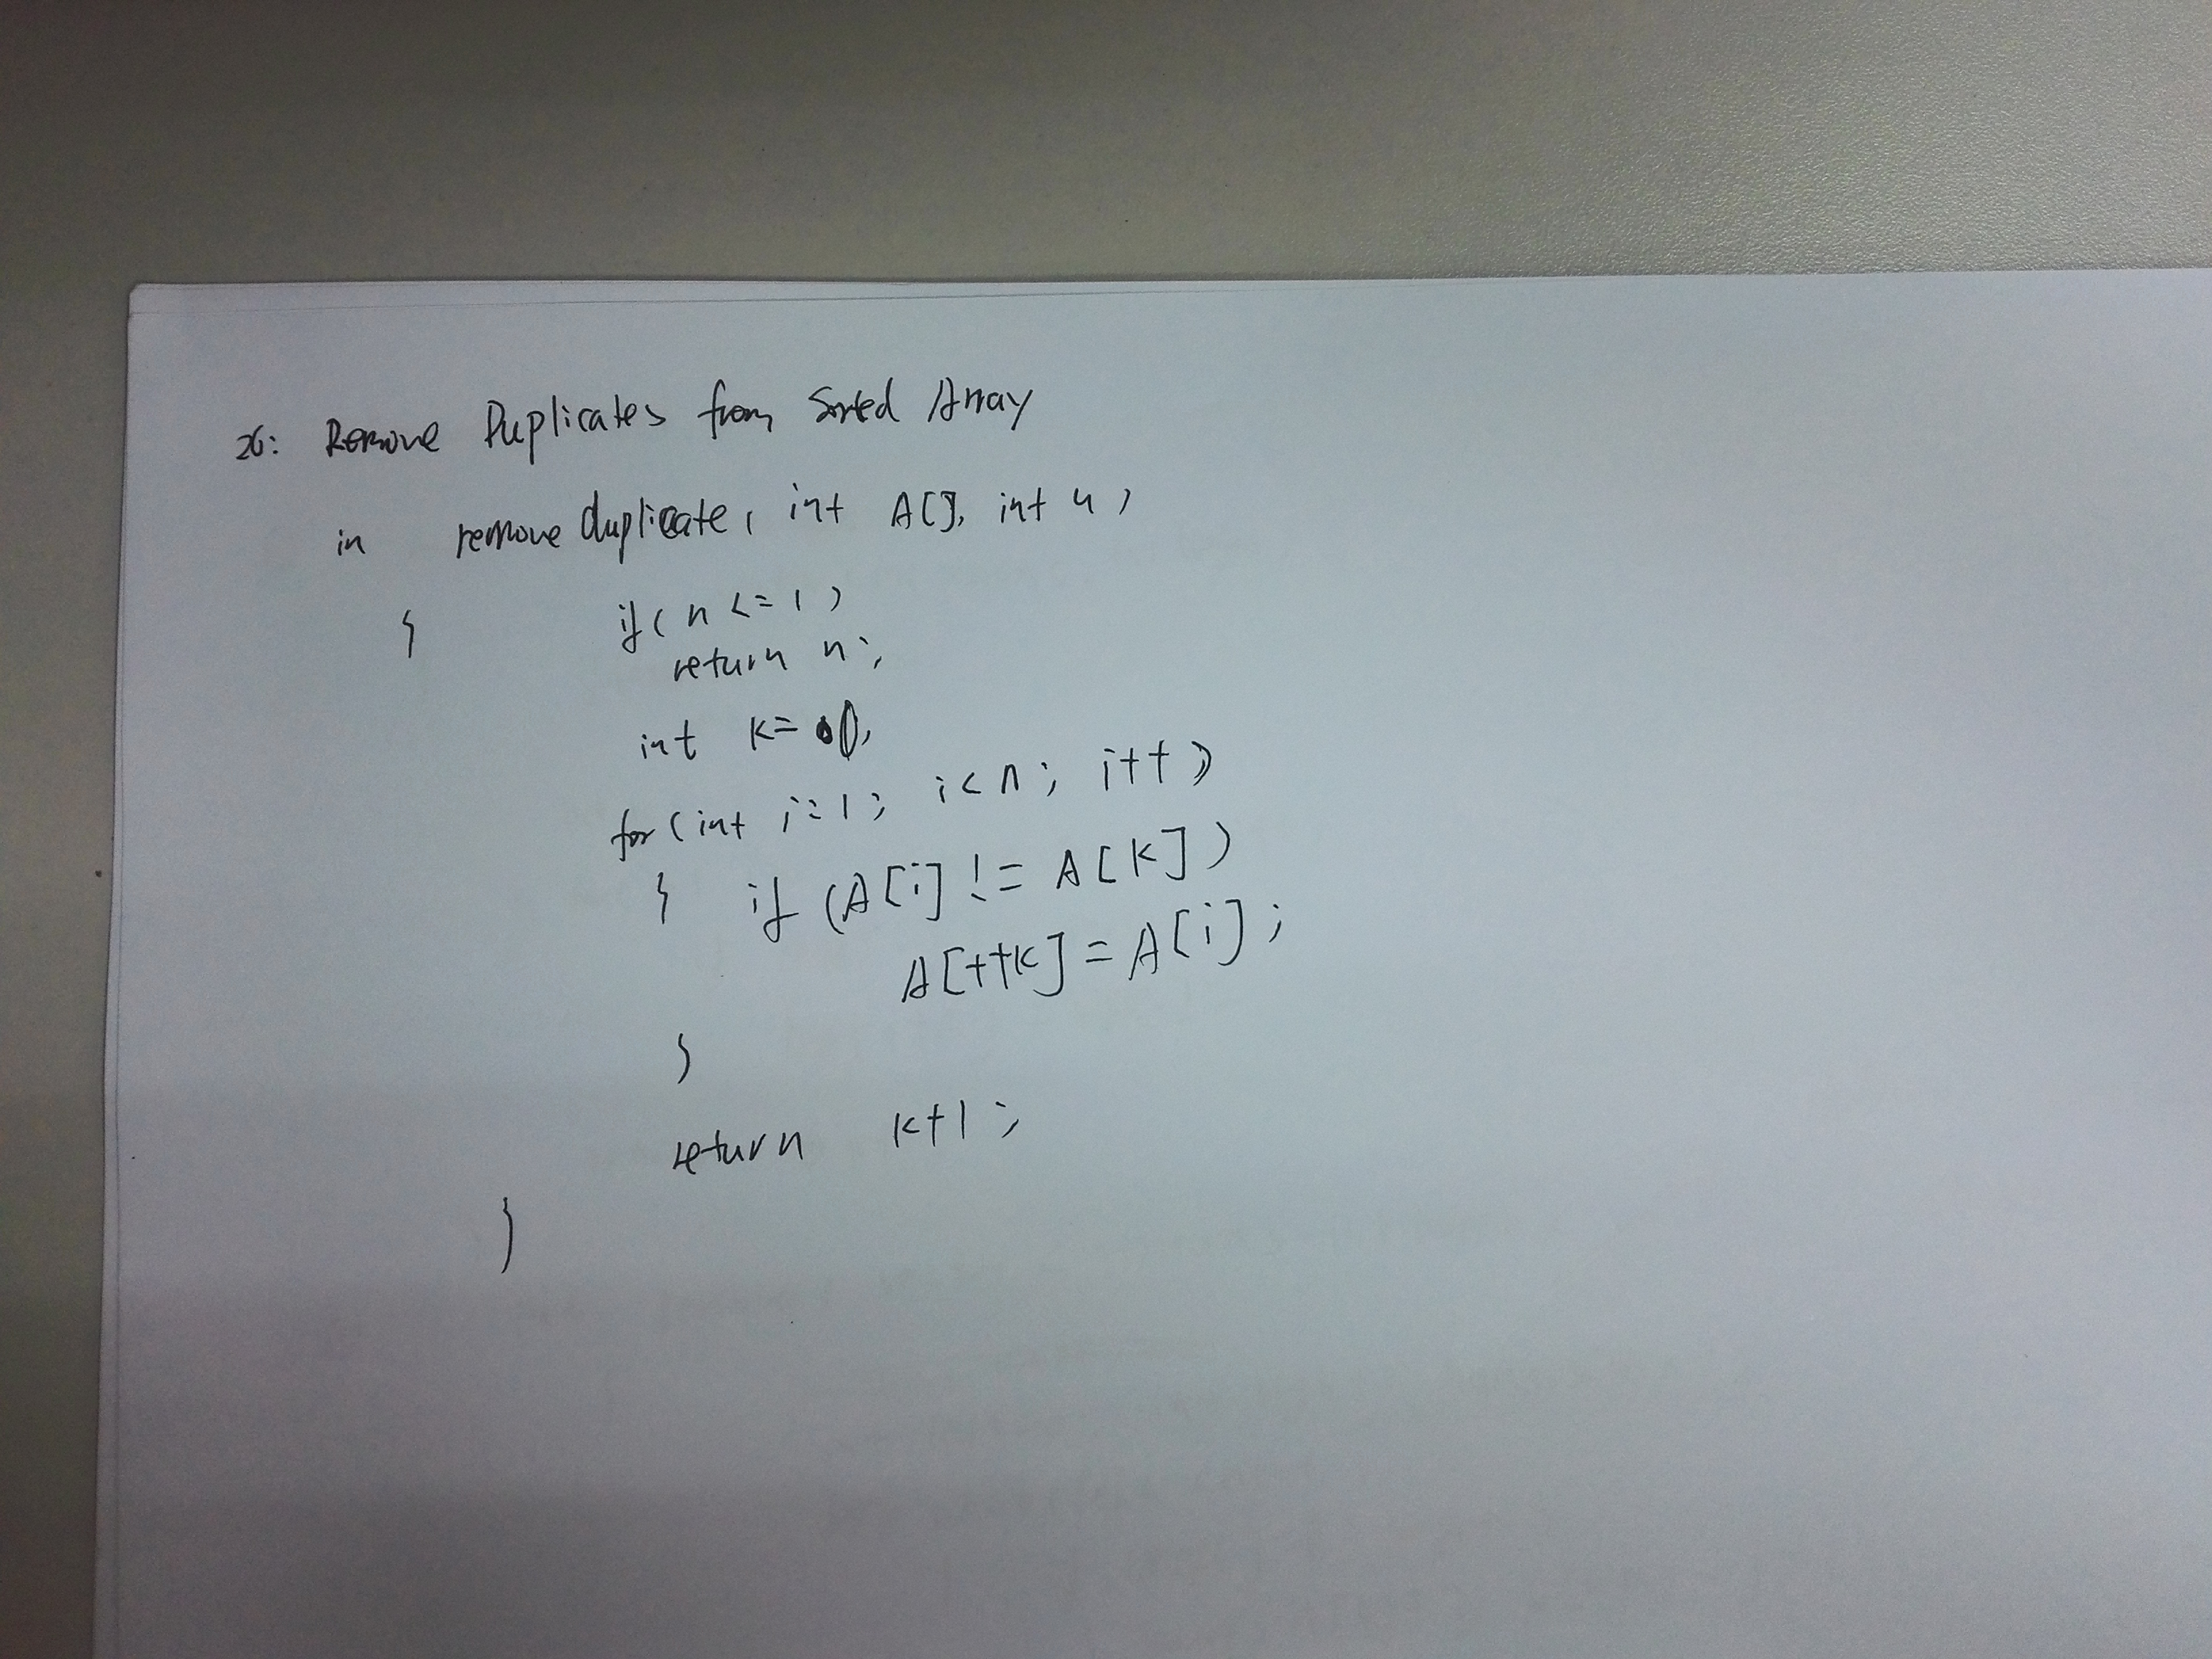 26: Remove Duplicates from Sorted Array
in remove duplicate( int A[], int n )
{ if( n <= 1 )
return n;
int k= 0;
for( int i=1; i< n; i++ )
{ if (A[i] != A[k])
A[++k] = A[i];
}
return k+1;
}